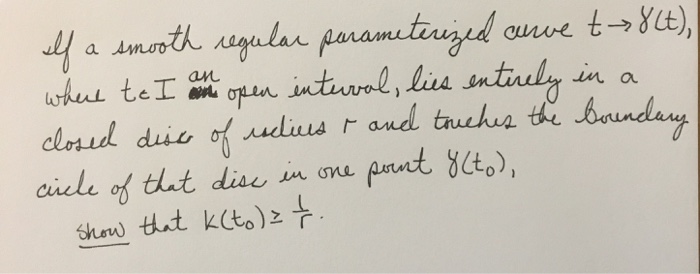 If a smooth regular parameterized curve t→γ(t),
where t∈I an open interval, lies entirely in a
closed disc of radius r and touches the boundary
circle of that disc in one point γ(t₀),
show that k(t₀) ≥ 1/r.